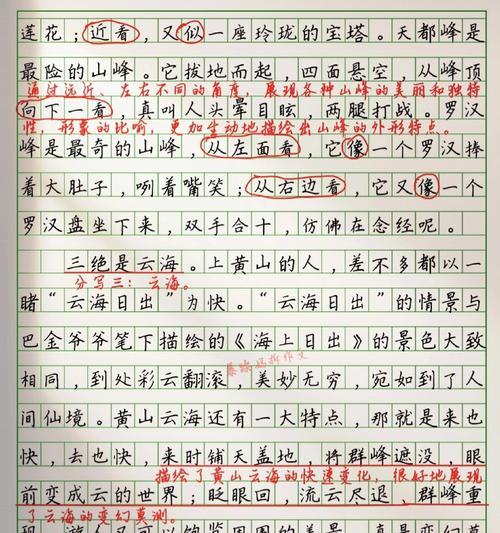 莲花；近看，又似一座玲珑的宝塔。天都峰是
最险的山峰。它拔地而起，四面悬空，从峰顶
通过远近、左右不同的角度，展现各种山峰的美丽和独特
向下一看，真叫人头晕目眩，两腿打战。罗汉
性，形象的比喻，更加生动地描绘出山峰的外形特点。
峰是最奇的山峰，从左面看，它像一个罗汉捧
着大肚子，咧着嘴笑；从右边看，它又像一个
罗汉盘坐下来，双手合十，仿佛在念经呢。
三绝是云海。上黄山的人，差不多都以一
分写三：云海。
睹“云海日出”为快。“云海日出”的情景与
巴金爷爷笔下描绘的《海上日出》的景色大致
相同，到处彩云翻滚，美妙无穷，宛如到了人
间仙境。黄山云海还有一大特点，那就是来也
快，去也快，来时铺天盖地，将群峰遮没，眼
描绘了黄山云海的快速变化，很好地展现
前变成云的世界；眨眼回，流云尽退，群峰重
了云海的变幻莫测。